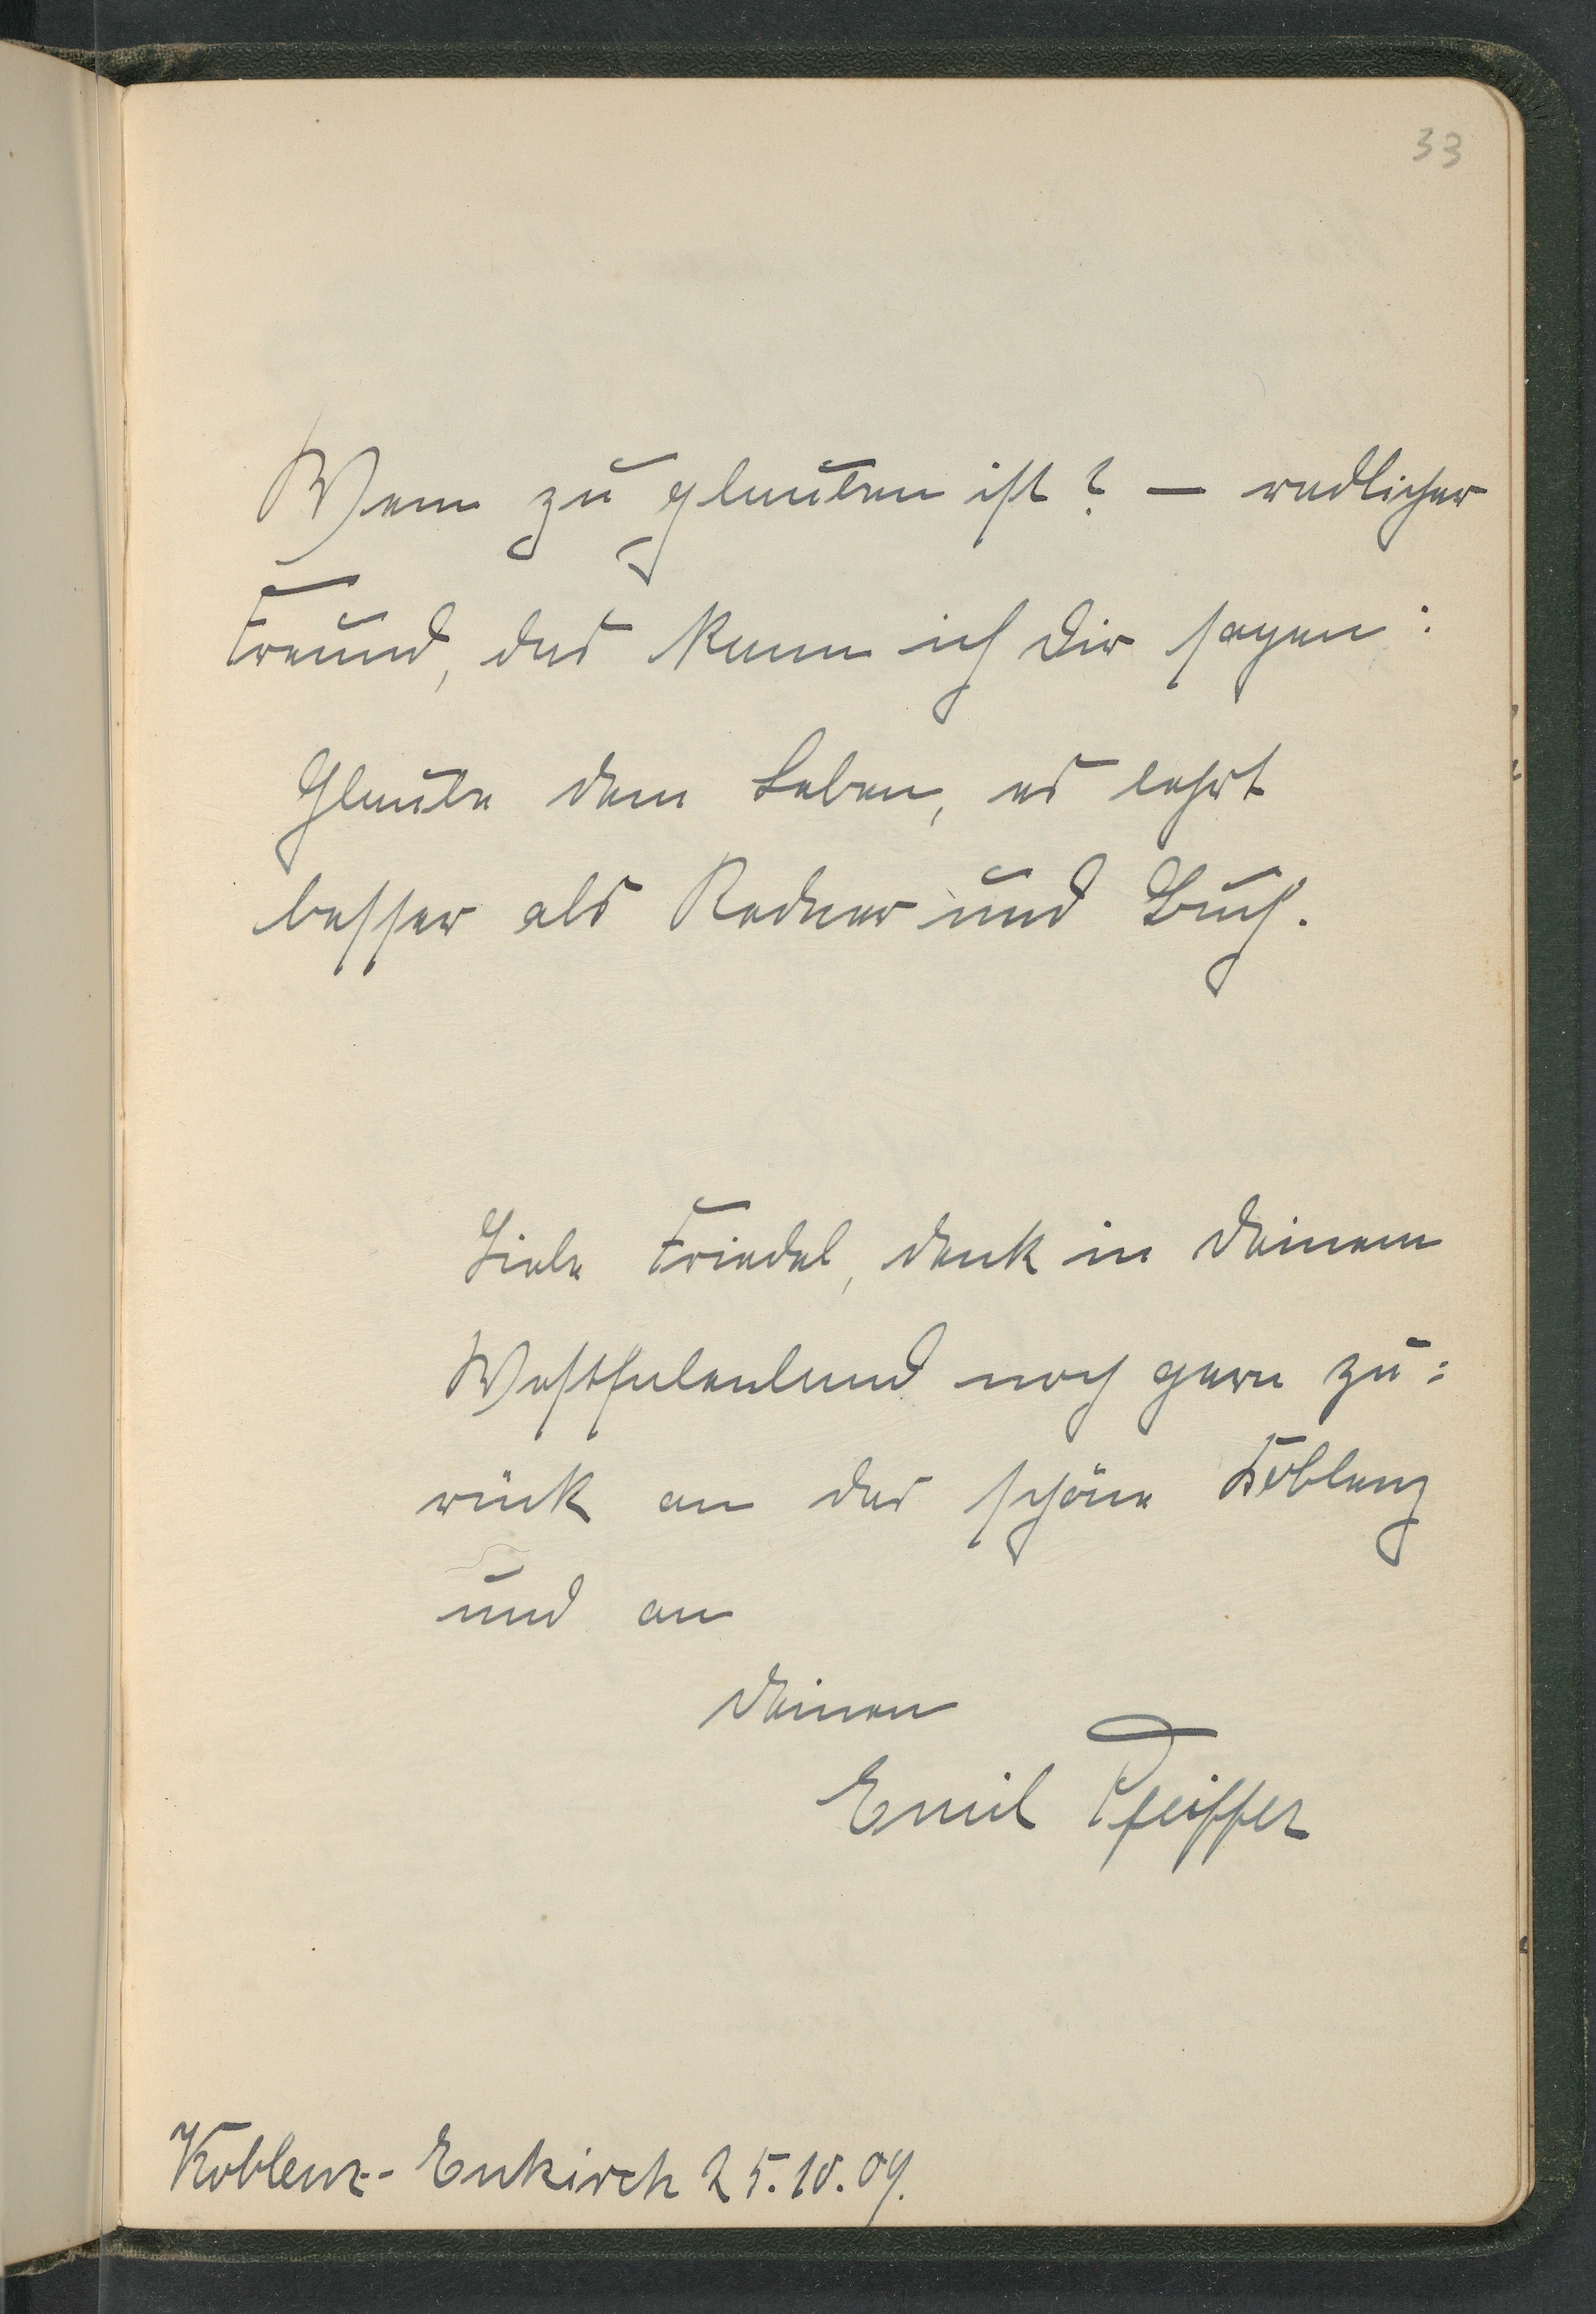 33
Wem zu glauben ist? — redlicher
Freund, das kann ich Dir sagen:
Glaube dem Leben, es lehrt
besser als Redner und Buch.
Liebe Friedel, denk in Deinem
Westfalenland noch gern zu:
rück an das schöne Koblenz
und an
Deinen
Emil Pfeiffer
Koblenz-Enkirch 25.10.09.